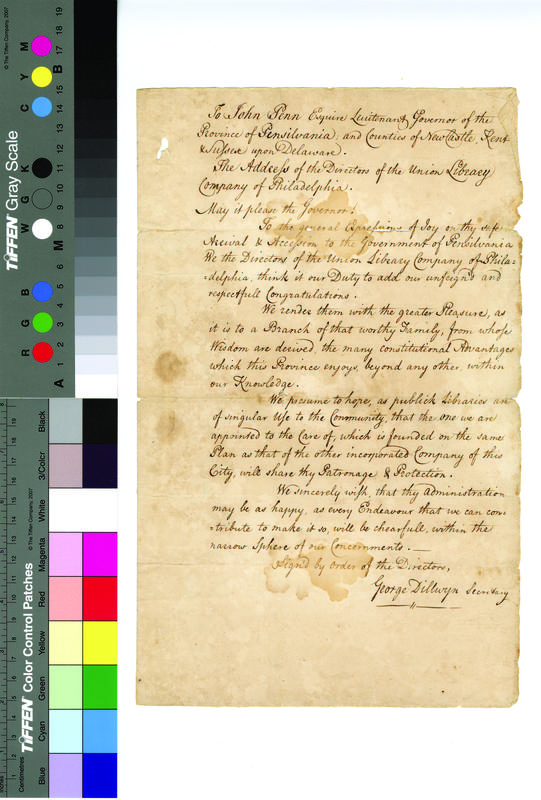 To John Penn Esquire Lieutenant Governor of the
Province of Pensilvania; and Counties of New Castle, Kent
& Sussex upon Delaware.
The Address of the Directors of the Union Library
Company of Philadelphia.
May it please the Governor!
To the general Expressions of Joy on thy safe
Arrival & Accession to the Government of Pensilvania
We the Directors of the Union Library Company of Phila-
=delphia, think it our Duty to add our unfeign'd and
respectfull Congratulations.
We render them with the greater Pleasure, as
it is to a Branch of that worthy Family, from whose
Wisdom are derived, the many constitutional Advantages
which this Province enjoys, beyond any other, within
our Knowledge.
We presume to hope, as publick Libraries are
of singular Use to the Community, that the one we are
appointed to the Care of, which is founded on the same
Plan as that of the other incorporated Company of this
City, will share thy Patronage & Protection.
We sincerely wish, that thy Administration
may be as happy, as every Endeavour that we can con-
=tribute to make it so, will be chearfull, within the
narrow Sphere of our Concernments.—
Signd by order of the Directors,
George Dillwyn Secretary
TIFFEN Gray Scale
© The Tiffen Company, 2007
R G B W G K C Y M
A 1 2 3 4 5 6 M 8 9 10 11 12 13 14 15 B 17 18 19
TIFFEN Color Control Patches
© The Tiffen Company, 2007
Blue Cyan Green Yellow Red Magenta White 3/Color Black
Centimetres
Inches